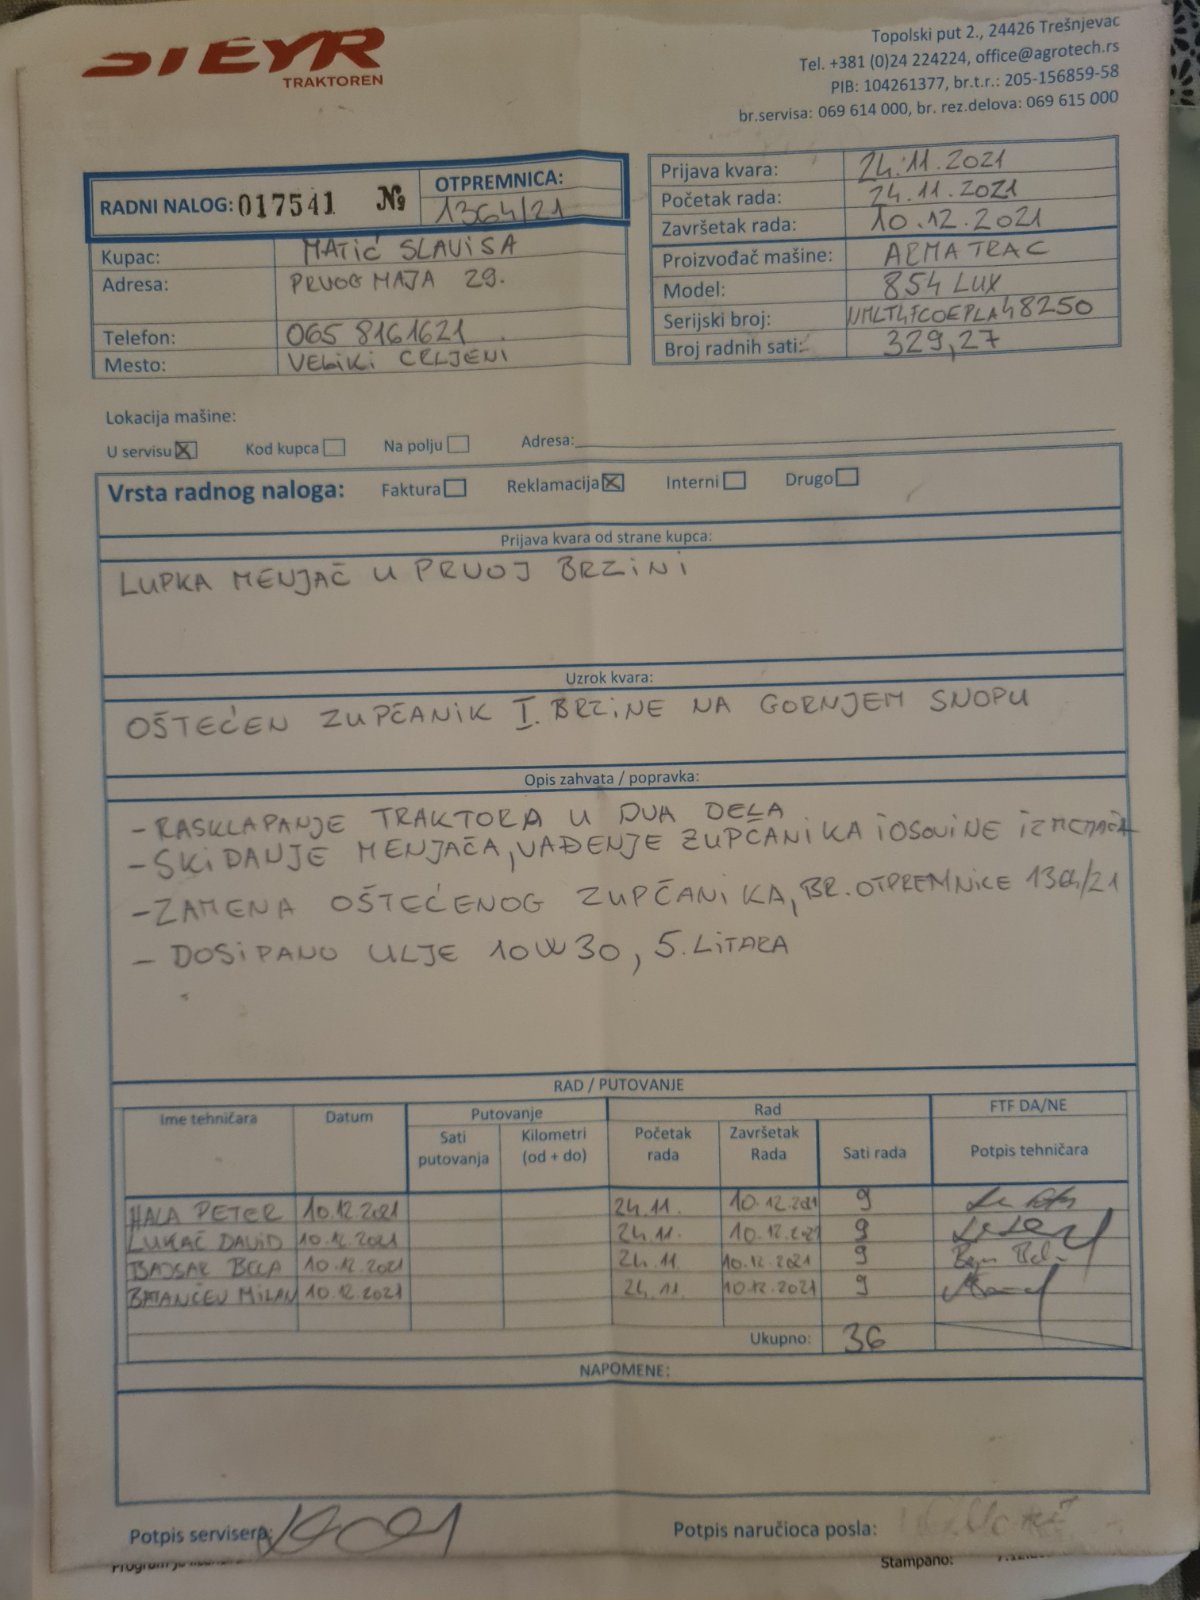 STEYR
TRAKTOREN
Topolski put 2., 24426 Trešnjevac
Tel. +381 (0)24 224224, office@agrotech.rs
PIB: 104261377, br.t.r.: 205-156859-58
br.servisa: 069 614 000, br. rez.delova: 069 615 000
RADNI NALOG: 017541 №
OTPREMNICA:
1364/21
Kupac: MATIĆ SLAVIŠA
Adresa: PRVOG MAJA 29.
Telefon: 065 8161621
Mesto: VELIKI CRLJENI
Prijava kvara: 24.11.2021
Početak rada: 24.11.2021
Završetak rada: 10.12.2021
Proizvođač mašine: ARMATRAC
Model: 854 LUX
Serijski broj:
Broj radnih sati: 329,27
Lokacija mašine:
U servisu Kod kupca Na polju Adresa:
Vrsta radnog naloga: Faktura Reklamacija Interni Drugo
Prijava kvara od strane kupca:
LUPKA MENJAČ U PRVOJ BRZINI
Uzrok kvara:
OŠTEĆEN ZUPČANIK I. BRZINE NA GORNJEM SNOPU
Opis zahvata / popravka:
- RASKLAPANJE TRAKTORA U DVA DELA
- SKIDANJE MENJAČA, VAĐENJE ZUPČANIKA I OSOVINE IZ MENJAČA
- ZAMENA OŠTEĆENOG ZUPČANIKA, BR. OTPREMNICE 1364/21
- DOSIPANO ULJE 10W30, 5. LITARA
RAD / PUTOVANJE
Ime tehničara Datum Putovanje Rad FTF DA/NE
Sati putovanja Kilometri (od + do) Početak rada Završetak Rada Sati rada Potpis tehničara
HALA PETER 10.12.2021 24.11. 10.12.2021 9
LUKAČ DAVID 10.12.2021 24.11. 10.12.2021 9
BELA 10.12.2021 24.11. 10.12.2021 9
MILAN 10.12.2021 24.11. 10.12.2021 9
Ukupno: 36
NAPOMENE:
Potpis servisera:
Potpis naručioca posla:
Stampano: